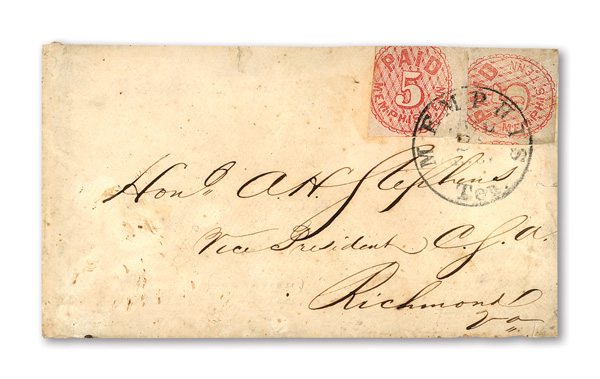 PAID
5
MEMPHIS TENN
PAID
5
MEMPHIS TENN
MEMPHIS
Ten.
Hond A. H. Stephens
Vice President C. S. A.
Richmond
Va